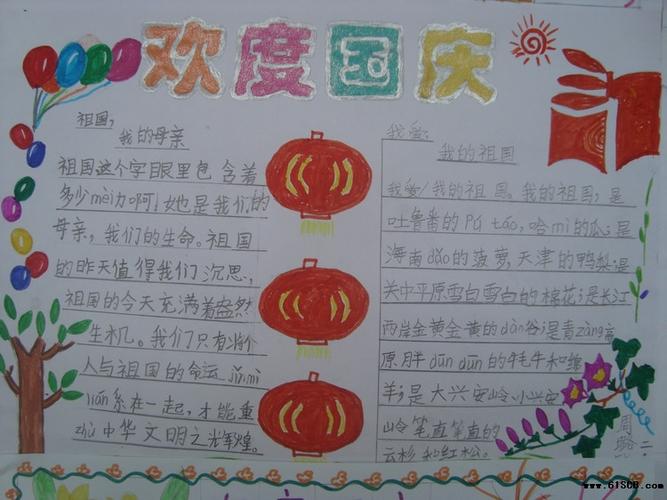 欢度国庆
祖国,
我的母亲
祖国这个字眼里包含着
多少mèi力啊!她也是我们的
母亲,我们的生命。祖国
的昨天值得我们沉思,
祖国的今天充满着盎然
生机。我们只有将个
人与祖国的命运jǐn mì
lián系在一起,才能重
zhù中华文明之光辉煌。
我爱,
我的祖国
我爱/我的祖国。我的祖国;是
吐鲁番的pú táo,哈mì的瓜;是
海南dǎo的菠萝,天津的鸭梨;是
关中平原雪白雪白的棉花;是长江
两岸金黄金黄的dào谷;是青zàng高
原胖dūn dūn的牦牛和绵
羊;是大兴安岭小兴安
岭笔直笔直的
云杉和红松。
周
二
www.61SCB.com